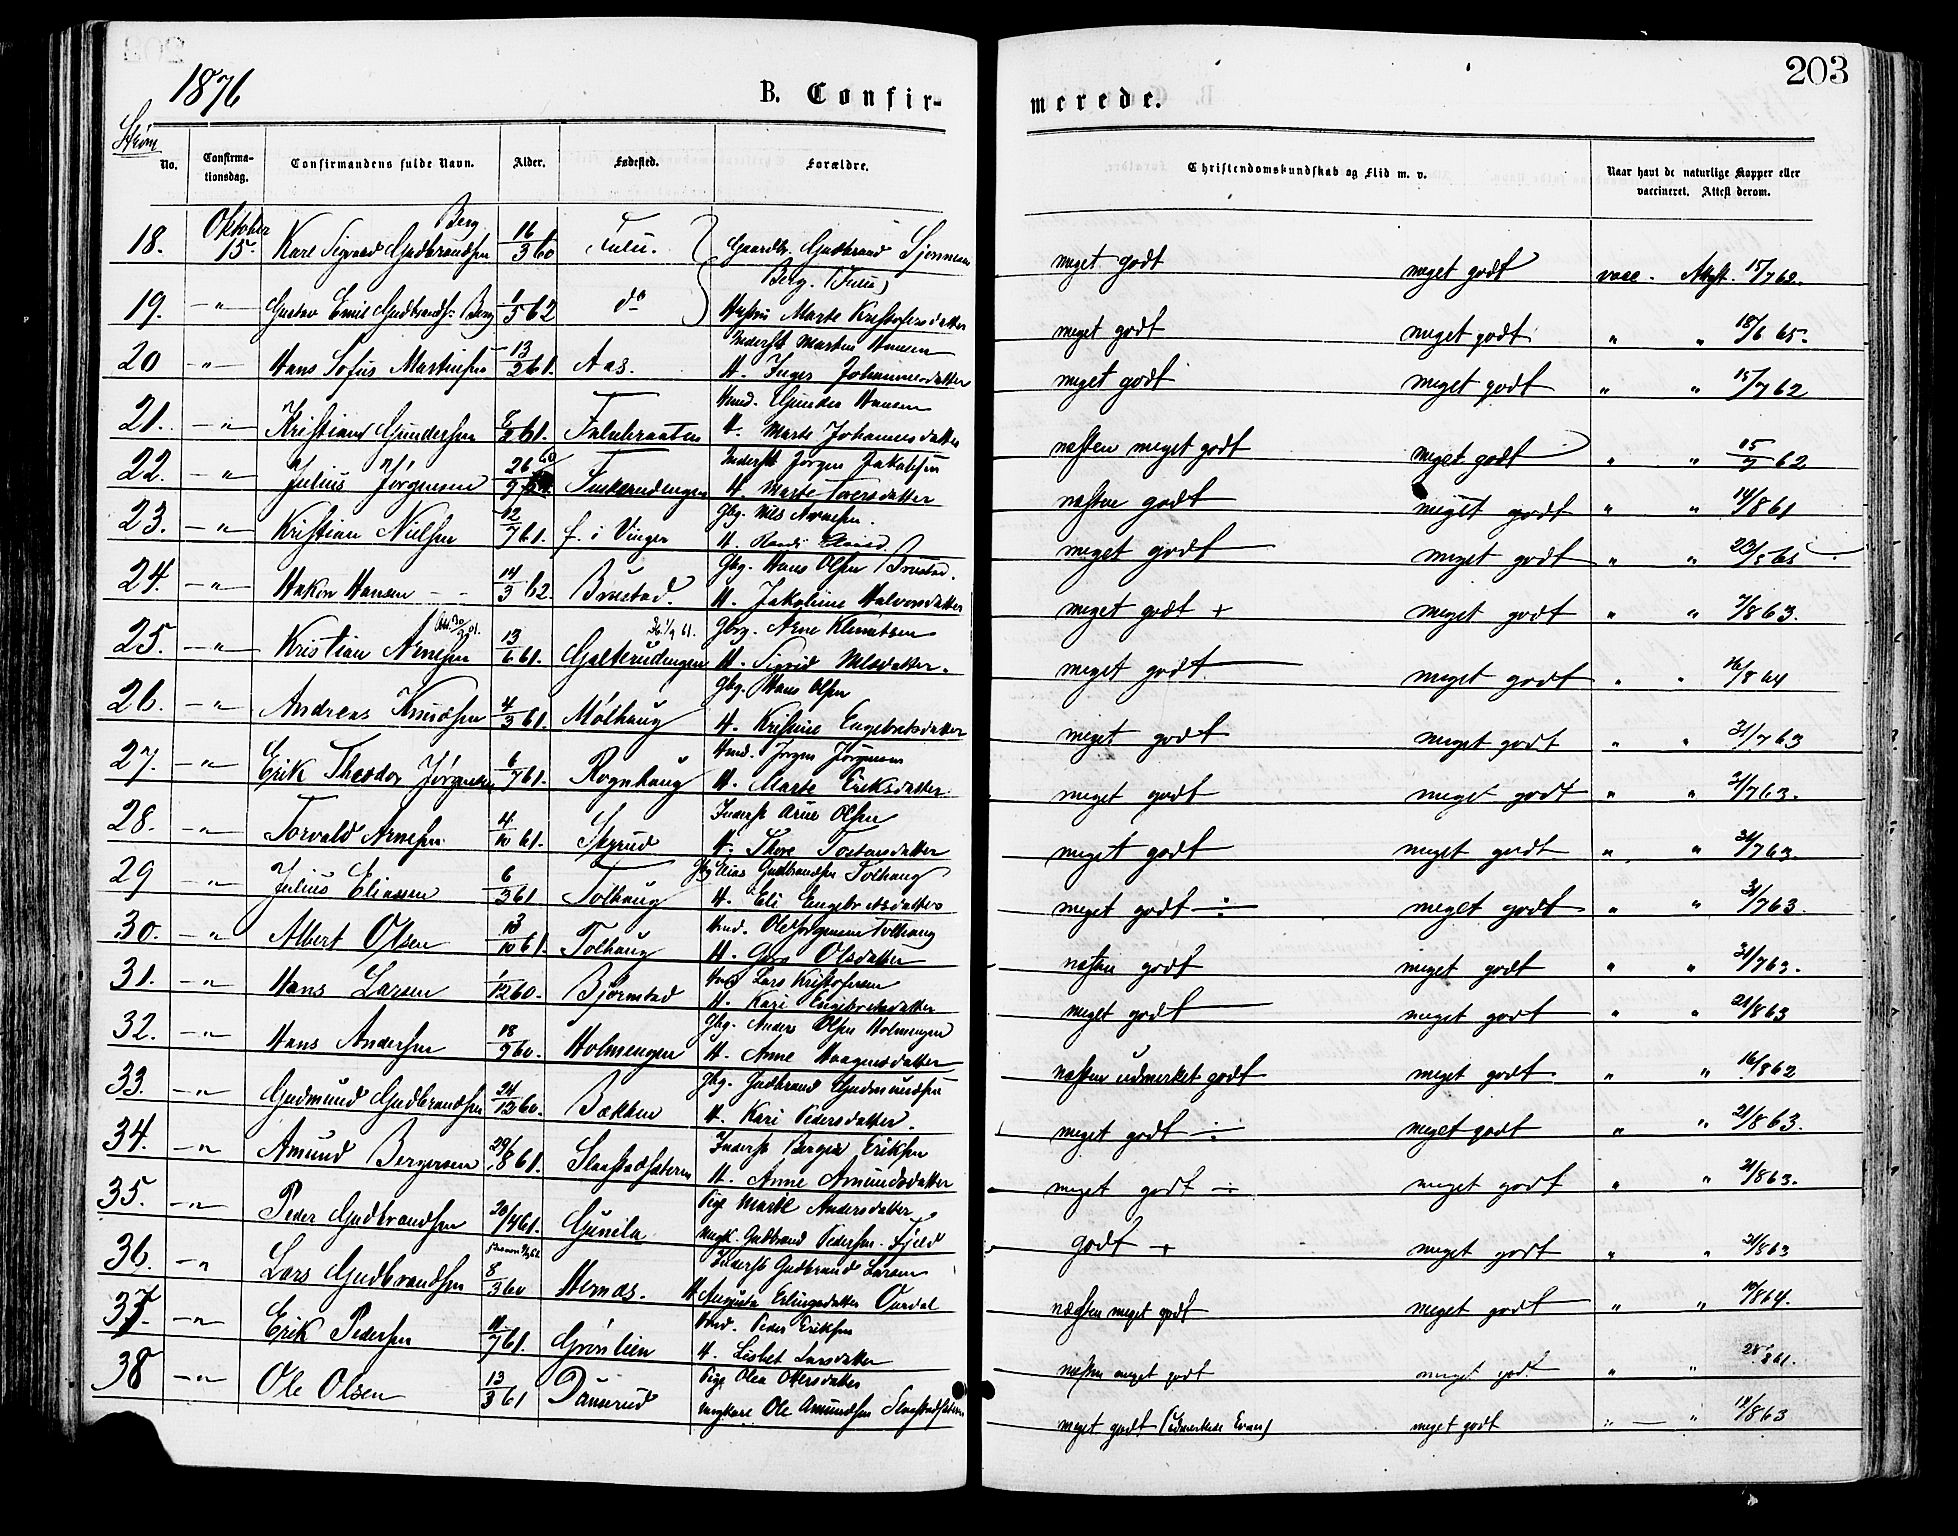 203
1876
B. Confirmerede.
Strøm
No. Confirmationsdag. Confirmandens fulde Navn. Alder. Fødested. Forældre. Christendomskundskab og Flid m. v. Naar havt de naturlige Kopper eller vaccineret. Attest derom.
18. Oktober 15. Karl Sigvard Gudbrandsen Berg 16/3 60 Fulu. Gaardbr. Gudbrand meget godt meget godt vacc. Attest. 15/7 62.
Berg. (Fulu)
19. -"- Gustav Emil Gudbrands: Berg 1/5 62 do Hustru Marte Kristofersdatter meget godt meget godt " " 18/6 65.
Inderst Martin Hansen
20 -"- Hans Sofus Martinsen 13/2 61. Aas. H. Inger Johannesdatter meget godt meget godt " " 15/7 62
Hmd. Gunder Hansen
21. -"- Kristian Gundersen 61. H. Marte Johannesdatter næsten meget godt meget godt " " 15/7 62
Inderst Jørgen Jakobsen
22. -"- Julius Jørgensen 26/9 60 H. Marte næsten godt meget godt " " 14/8 61
Gbg. Nils Arnesen.
23. -"- Kristian Nielsen 12/7 61. f. i Vinger H. meget godt meget godt " " 23/5 65
Gbg. Hans Olsen Brustad.
24. -"- Hakon Hansen 14/3 62. Brustad. H. Jakobine Halvorsdatter meget godt + meget godt " " 7/8 63.
Gbrg. Arne Klemetsen
25. -"- Kristian Arnesen 13/6 61. Galterudengen H. Sigrid Nilsdatter. meget godt meget godt " " 16/8 64
Gbg. Hans Olsen
26. -"- Andreas Knudsen 4/3 61. Mølhaug H. Kristine Engebretsdatter meget godt meget godt " " 31/7 63
Hmd. Jørgen Jørgensen
27. -"- Erik Theodor Jørgensen 6/7 61. Rognhaug H. Marte Eriksdatter. meget godt meget godt " " 31/7 63.
Inderst Arne Olsen
28. -"- Torvald Arnesen 4/10 61. Skyrud H. Thore Tostensdatter meget godt meget godt " " 31/7 63.
Gbg Elias Gudbrandsen Tolhaug
29 -"- Julius Eliassen 6/3 61 Tolhaug H. Eli Engebretsdatter meget godt ÷ meget godt " " 31/7 63.
Hmd. Ole Jørgensen Tolhaug
30. -"- Albert Olsen 13/10 61. Tolhaug H. Olsdatter næsten godt meget godt " " 31/7 63.
Hmd Lars Kristofersen
31. -"- Hans Larsen 1/12 60. Bjørnstad H. Kari Engebretsdatter meget godt meget godt " " 21/8 63
Gbg. Anders Olsen Holmengen
32. -"- Hans Andersen 18/9 60. Holmengen H. Anne Haagensdatter næsten udmerket godt meget godt " " 16/8 62
Gbg. Gudbrand Gudmundsen
33. -"- Gudmund Gudbrandsen 24/12 60. Bækken H. Kari Pedersdatter. meget godt ÷ meget godt " " 21/8 63.
Inderst Berger Eriksen
34. -"- Amund Bergersen 29/8 61. Slaastadsæteren H. Anne Amundsdatter meget godt ÷ meget godt " " 21/8 63.
Pige Marte Andersdatter
35. -"- Peder Gudbrandsen 20/4 61. Gunila Ungk. Gudbrand Pedersen Fjeld godt + meget godt " " 21/8 63
Inderst Gudbrand Larsen
36. -"- Lars Gudbrandsen 8/3 60 Hernæs. H Augusta Erlingsdatter næsten meget godt meget godt " " 10/8 64.
Hmd. Peder Eriksen
37. -"- Erik Pedersen 11/7 61. Grønlien H. Lisbet Larsdatter næsten meget godt meget godt " " 25/8 61.
Pige Olea Olersdatter
38 -"- Ole Olsen 13/3 61 Danserud Ungkarl Ole Amundsen Slaastadsæteren meget godt (udmerkede Evner) meget godt " " 12/8 63